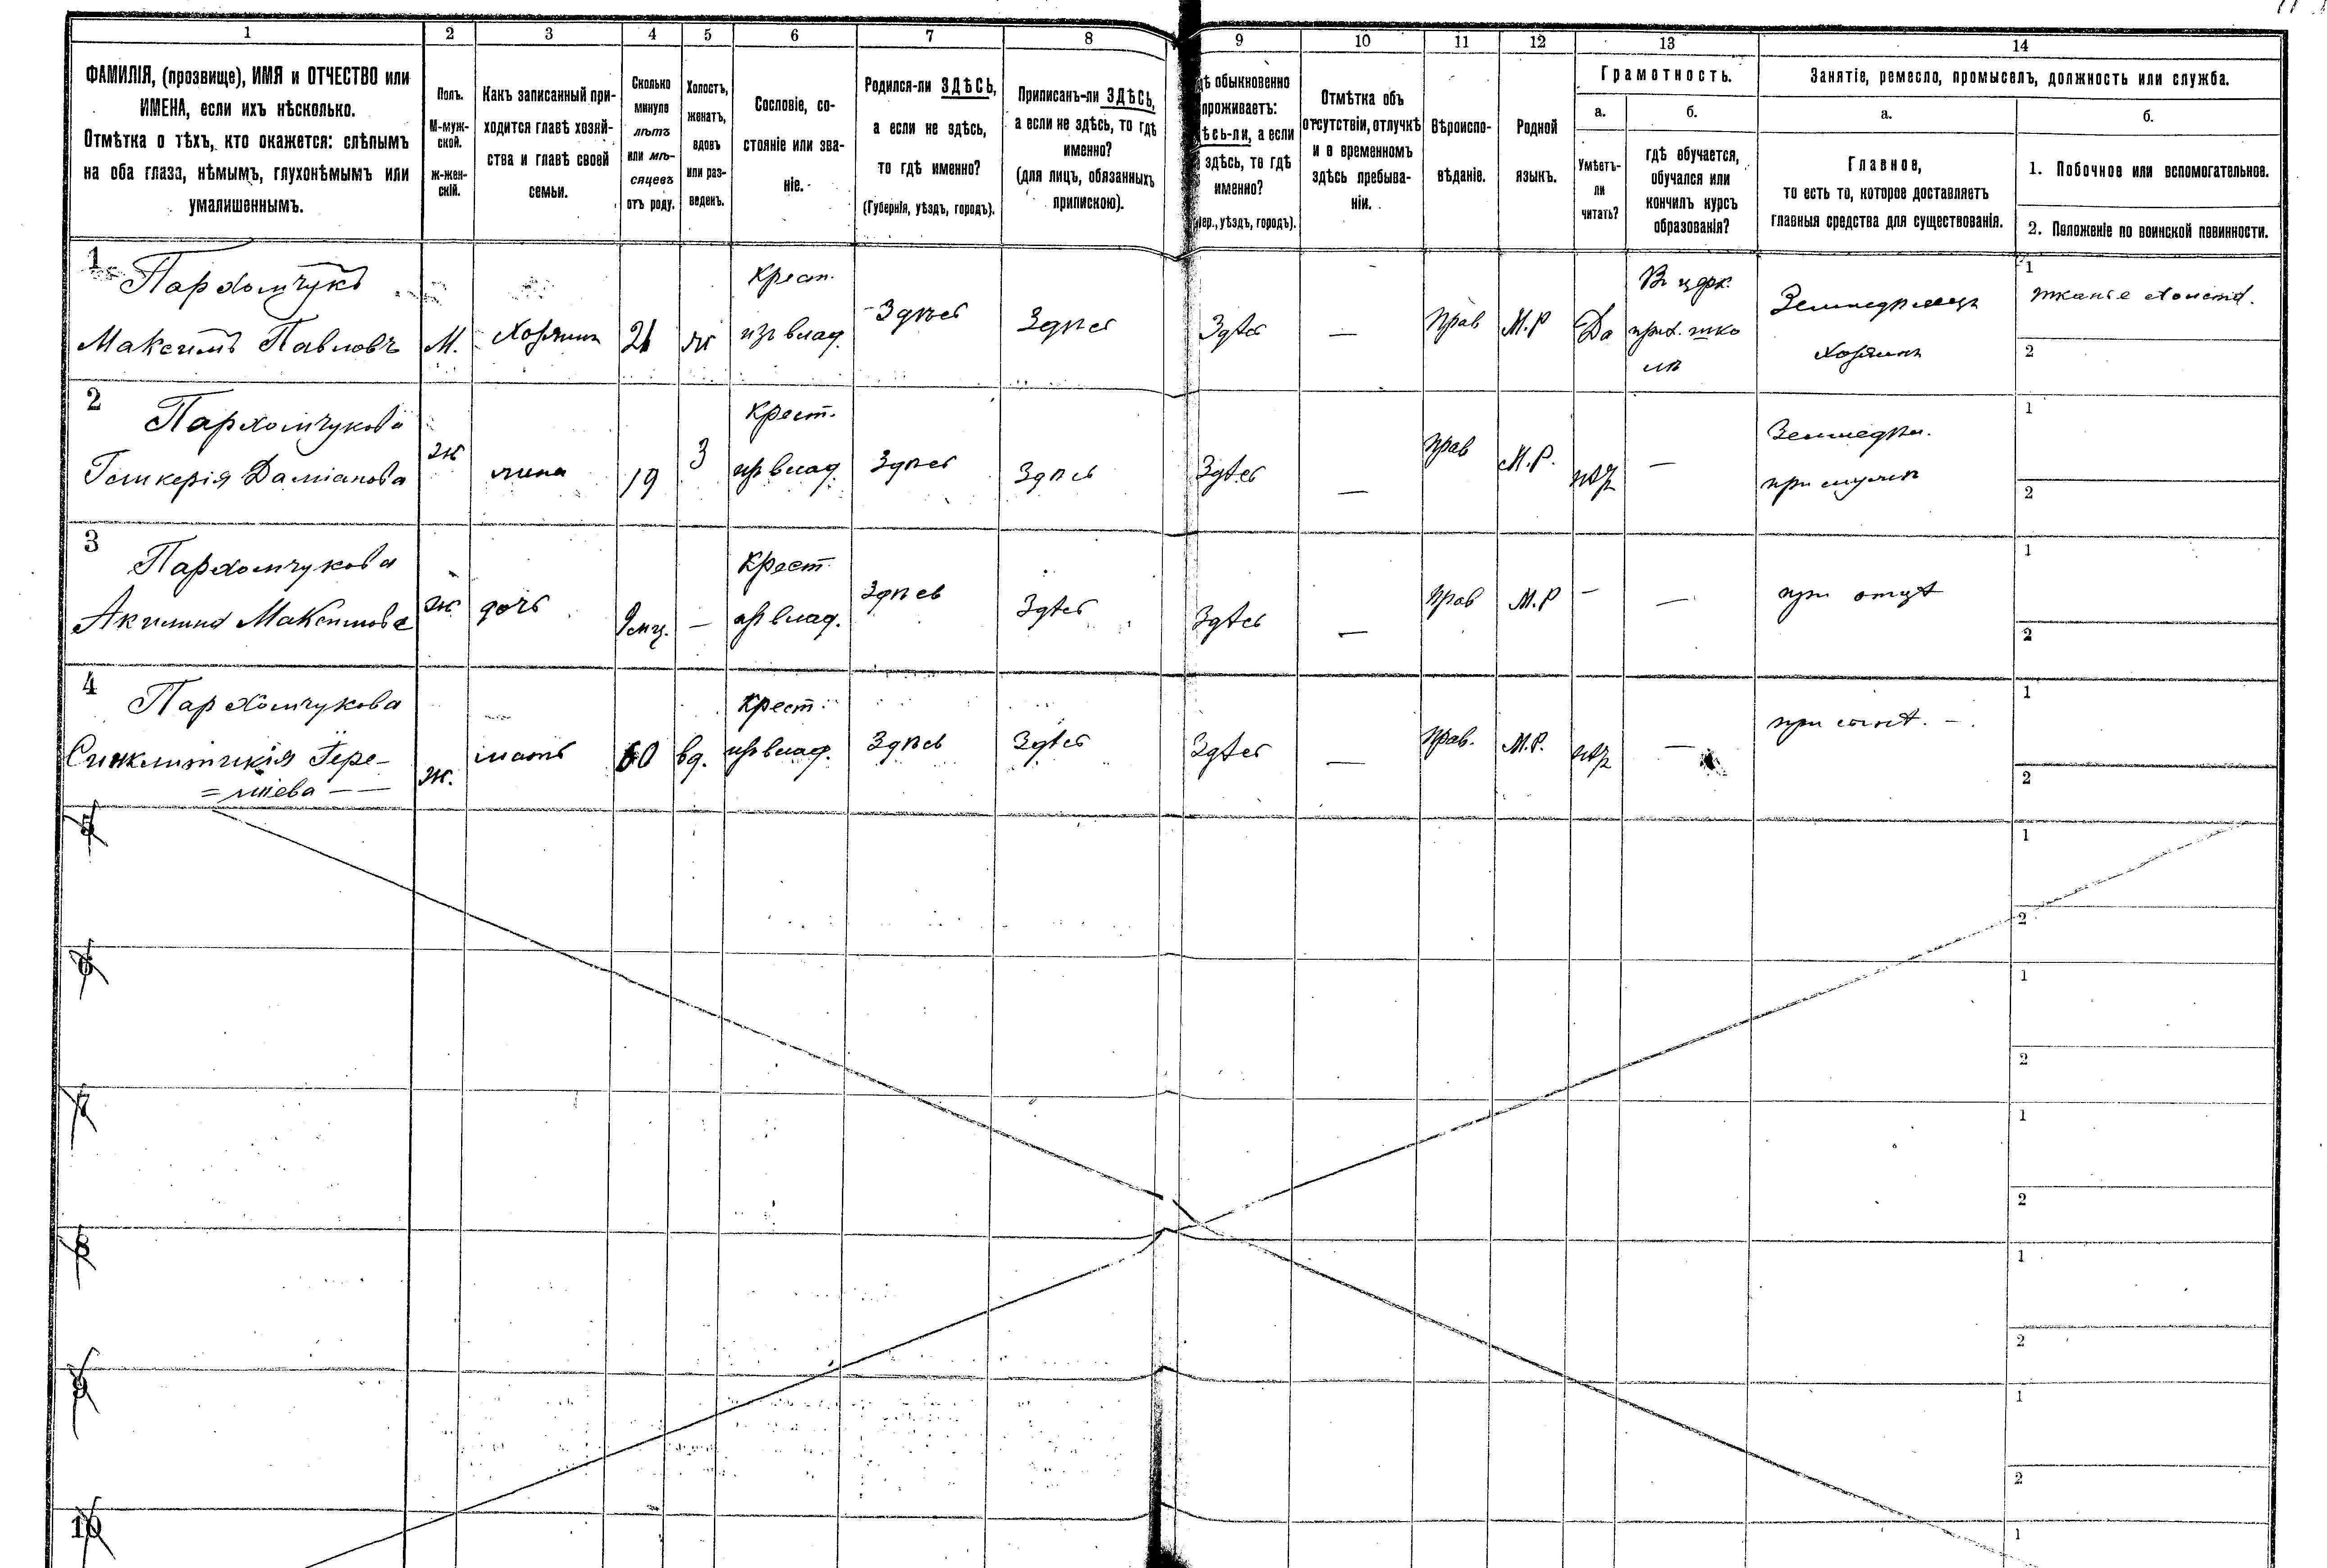 1 2 3 4 5 6 7 8 9 10 11 12 13 14
ФАМИЛІЯ, (прозвище), ИМЯ и ОТЧЕСТВО или
ИМЕНА, если ихъ нѣсколько.
Отмѣтка о тѣхъ, кто окажется: слѣпымъ
на оба глаза, нѣмымъ, глухонѣмымъ или
умалишеннымъ.
Полъ.
М-муж-
ской.
ж-жен-
скій.
Какъ записанный при-
ходится главѣ хозяй-
ства и главѣ своей
семьи.
Сколько
минуло
лѣтъ
или мѣ-
сяцевъ
отъ роду.
Холостъ,
женатъ,
вдовъ
или раз-
веденъ.
Сословіе, со-
стояніе или зва-
ніе.
Родился-ли ЗДѢСЬ,
а если не здѣсь,
то гдѣ именно?
(Губернія, уѣздъ, городъ).
Приписанъ-ли ЗДѢСЬ,
а если не здѣсь, то гдѣ
именно?
(для лицъ, обязанныхъ
припискою).
дѣ обыкновенно
проживаетъ:
ѣсь-ли, а если
здѣсь, то гдѣ
именно?
ер., уѣздъ, городъ).
Отмѣтка объ
отсутствіи, отлучкѣ
и о временномъ
здѣсь пребыва-
ніи.
Вѣроиспо-
вѣданіе.
Родной
языкъ.
Грамотность.
а.
Умѣетъ-
ли
читать?
б.
гдѣ обучается,
обучался или
кончилъ курсъ
образованія?
Занятіе, ремесло, промыселъ, должность или служба.
а.
Главное,
то есть то, которое доставляетъ
главныя средства для существованія.
б.
1. Побочное или вспомогательное.
2. Положеніе по воинской повинности.
1
Пархомчукъ
Максимъ Павловъ
М.
Хозяинъ
21
ж
Крест.
изъ влад.
Здѣсь
Здѣсь
Здѣсь
—
Прав
М.Р
Да
Въ церк.
прих. шко
лѣ
Земледѣлецъ
Хозяинъ
1
тканье холста.
2
2
Пархомчукова
Гликерія Даміанова
ж
жена
19
З
Крест.
изъ влад.
Здѣсь
Здѣсь
Здѣсь
—
Прав
М.Р.
нѣт
—
Земледѣл.
при мужѣ
1
2
3
Пархомчукова
Акилина Максимова
ж
дочь
9 мц.
—
Крест
изъ влад.
Здѣсь
Здѣсь
Здѣсь
—
Прав
М.Р
—
—
при отцѣ
1
2
4
Пархомчукова
Синклитикія Іере-
=міева — —
ж.
мать
60
вд.
Крест.
изъ влад.
Здѣсь
Здѣсь
Здѣсь
—
Прав.
М.Р.
нѣт
—
при сынѣ. —.
1
2
5
1
2
6
1
2
7
1
2
8
1
2
9
1
2
10
1